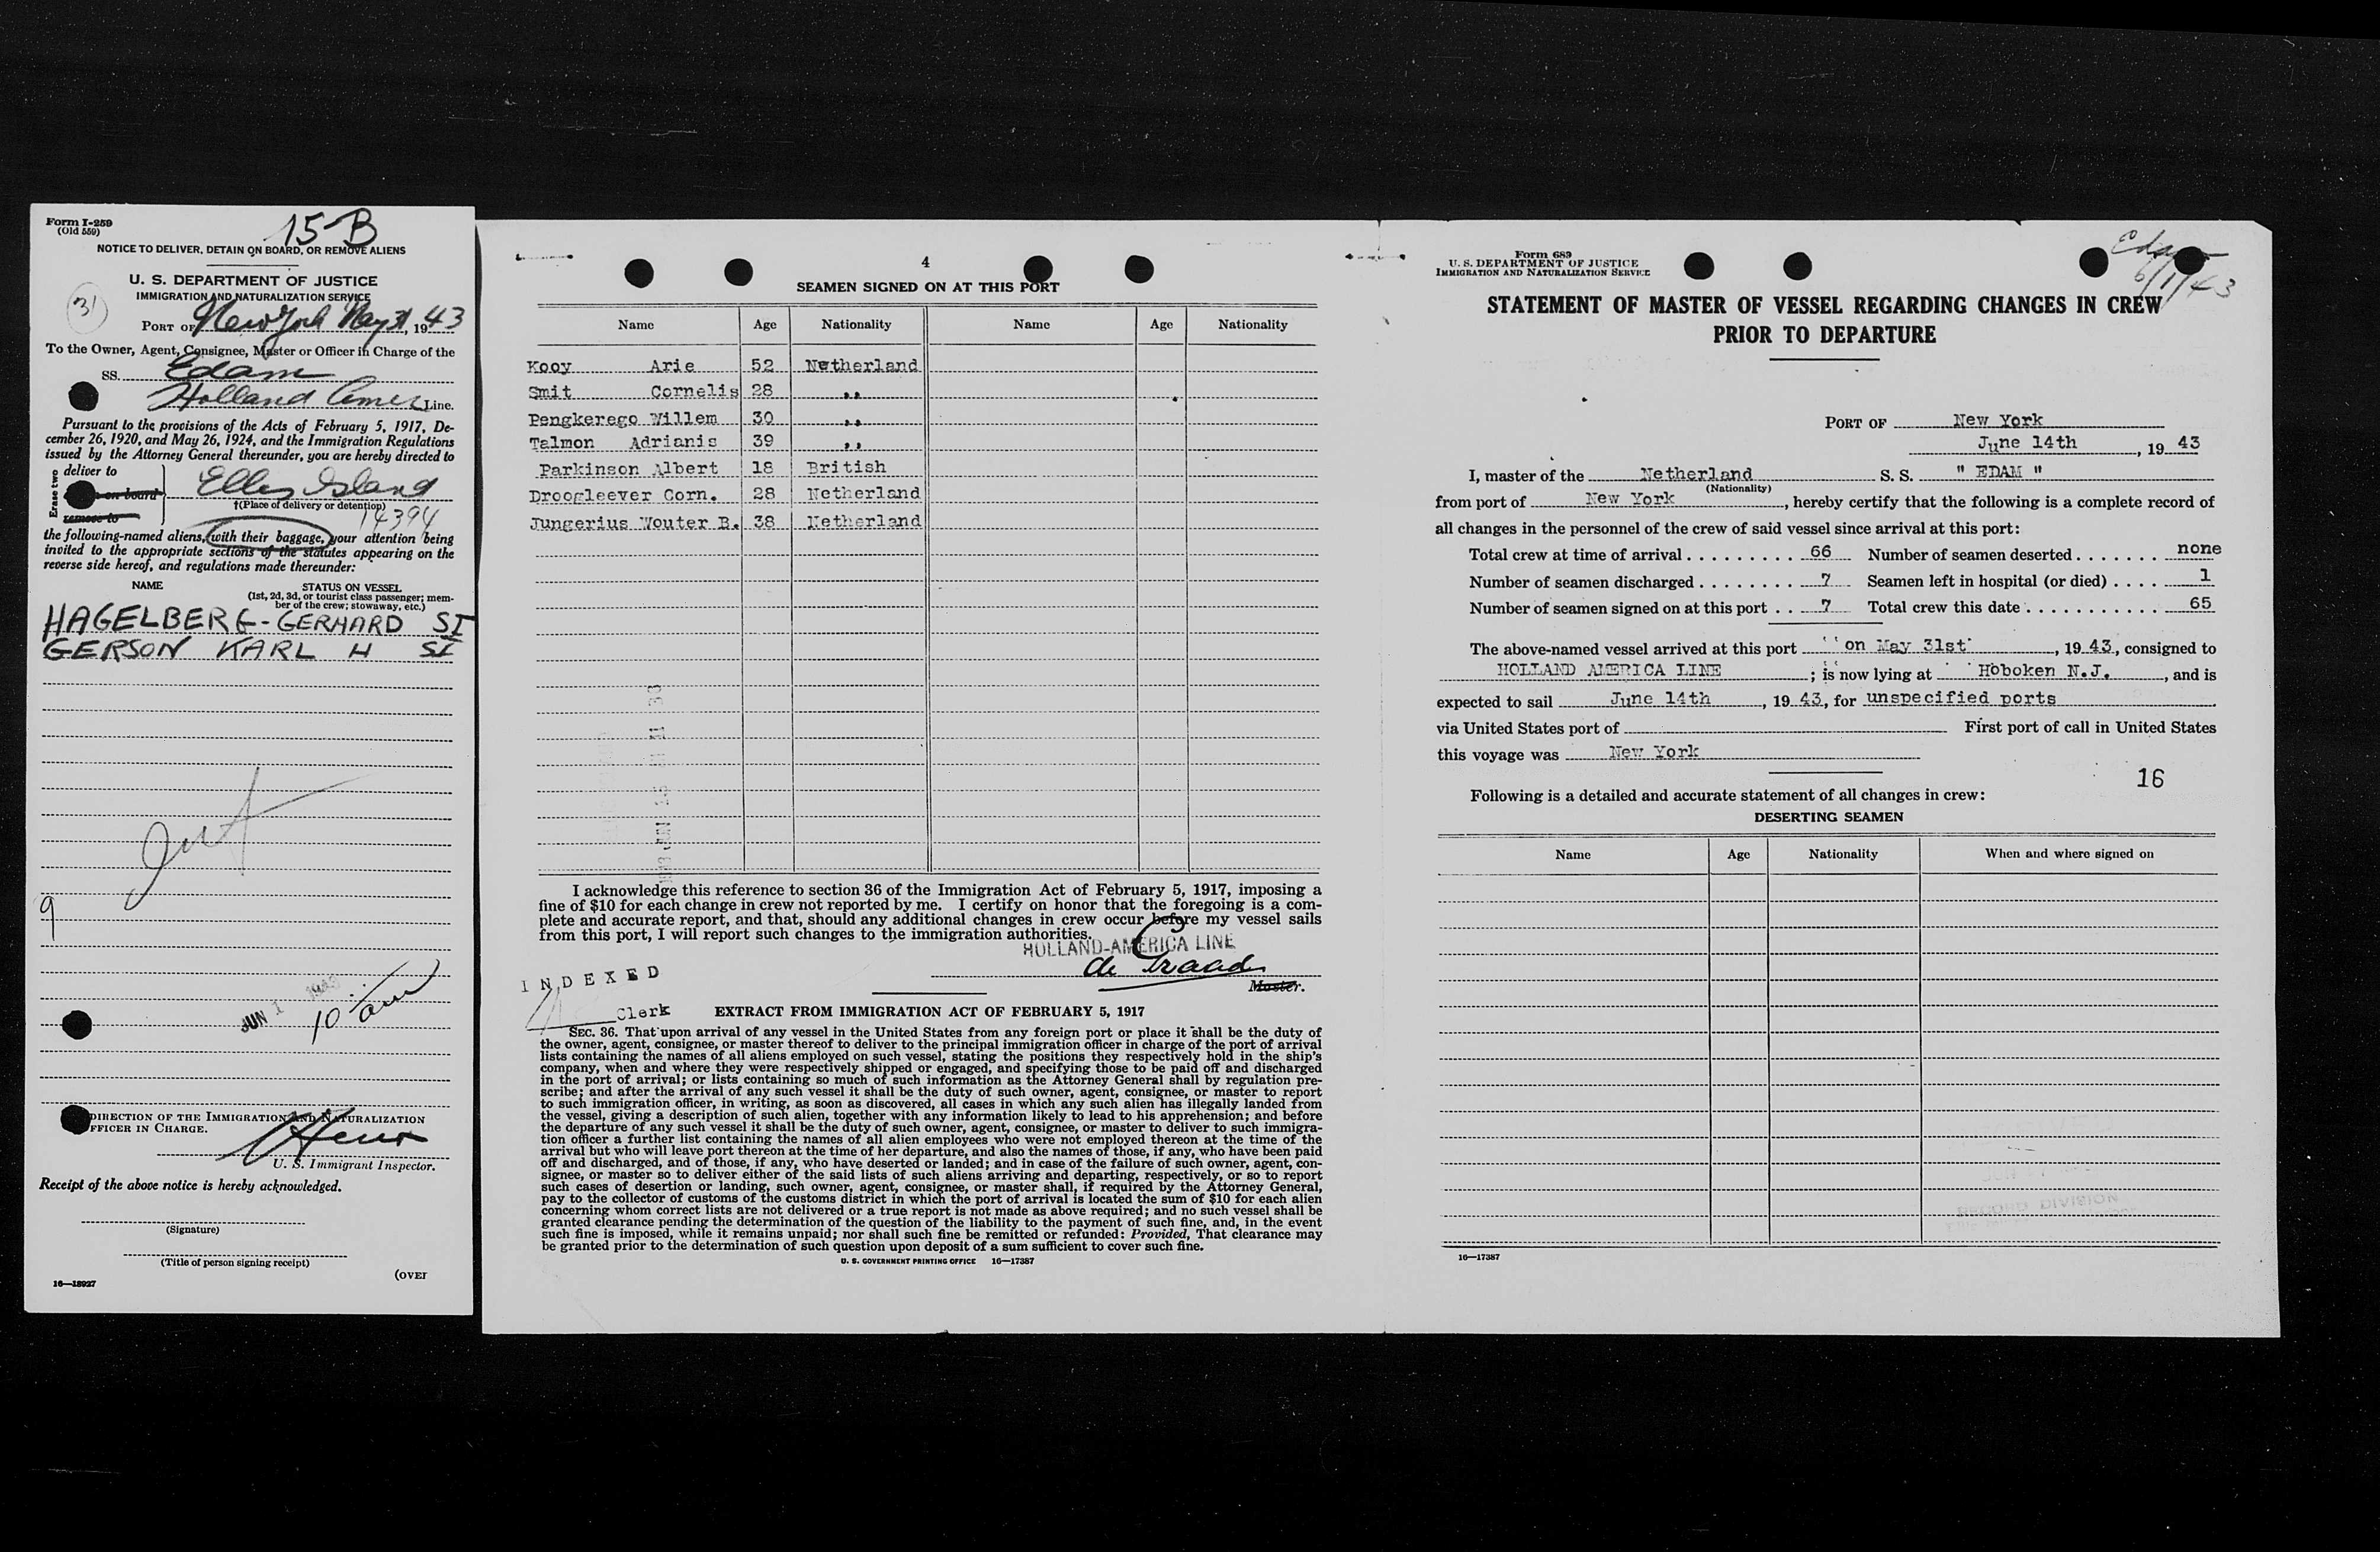 Form I-259
(Old 559)
15-B
NOTICE TO DELIVER, DETAIN ON BOARD, OR REMOVE ALIENS
U. S. DEPARTMENT OF JUSTICE
IMMIGRATION AND NATURALIZATION SERVICE
31
PORT OF New York May 31, 1943
To the Owner, Agent, Consignee, Master or Officer in Charge of the
SS. Edam
Holland Amer Line.
Pursuant to the provisions of the Acts of February 5, 1917, De-
cember 26, 1920, and May 26, 1924, and the Immigration Regulations
issued by the Attorney General thereunder, you are hereby directed to
Erase two
deliver to
on board
remove to
Ellis Island
†(Place of delivery or detention)
14394
the following-named aliens, with their baggage, your attention being
invited to the appropriate sections of the statutes appearing on the
reverse side hereof, and regulations made thereunder:
NAME STATUS ON VESSEL
(1st, 2d, 3d, or tourist class passenger; mem-
ber of the crew; stowaway, etc.)
HAGELBERG - GERHARD SI
GERSON KARL H SI
9
JUN 1 1943
10 am
DIRECTION OF THE IMMIGRATION AND NATURALIZATION
FFICER IN CHARGE.
U. S. Immigrant Inspector.
Receipt of the above notice is hereby acknowledged.
(Signature)
(Title of person signing receipt)
16—18927 (OVER
4
SEAMEN SIGNED ON AT THIS PORT
Name Age Nationality Name Age Nationality
Kooy Arie 52 Netherland
Smit Cornelis 28 ,,
Pengkerego Willem 30 ,,
Talmon Adrianis 39 ,,
Parkinson Albert 18 British
Droogleever Corn. 28 Netherland
Jungerius Wouter B. 38 Netherland
I acknowledge this reference to section 36 of the Immigration Act of February 5, 1917, imposing a
fine of $10 for each change in crew not reported by me. I certify on honor that the foregoing is a com-
plete and accurate report, and that, should any additional changes in crew occur before my vessel sails
from this port, I will report such changes to the immigration authorities.
HOLLAND-AMERICA LINE
Master.
INDEXED
Clerk
EXTRACT FROM IMMIGRATION ACT OF FEBRUARY 5, 1917
SEC. 36. That upon arrival of any vessel in the United States from any foreign port or place it shall be the duty of
the owner, agent, consignee, or master thereof to deliver to the principal immigration officer in charge of the port of arrival
lists containing the names of all aliens employed on such vessel, stating the positions they respectively hold in the ship's
company, when and where they were respectively shipped or engaged, and specifying those to be paid off and discharged
in the port of arrival; or lists containing so much of such information as the Attorney General shall by regulation pre-
scribe; and after the arrival of any such vessel it shall be the duty of such owner, agent, consignee, or master to report
to such immigration officer, in writing, as soon as discovered, all cases in which any such alien has illegally landed from
the vessel, giving a description of such alien, together with any information likely to lead to his apprehension; and before
the departure of any such vessel it shall be the duty of such owner, agent, consignee, or master to deliver to such immigra-
tion officer a further list containing the names of all alien employees who were not employed thereon at the time of the
arrival but who will leave port thereon at the time of her departure, and also the names of those, if any, who have been paid
off and discharged, and of those, if any, who have deserted or landed; and in case of the failure of such owner, agent, con-
signee, or master so to deliver either of the said lists of such aliens arriving and departing, respectively, or so to report
such cases of desertion or landing, such owner, agent, consignee, or master shall, if required by the Attorney General,
pay to the collector of customs of the customs district in which the port of arrival is located the sum of $10 for each alien
concerning whom correct lists are not delivered or a true report is not made as above required; and no such vessel shall be
granted clearance pending the determination of the question of the liability to the payment of such fine, and, in the event
such fine is imposed, while it remains unpaid; nor shall such fine be remitted or refunded: Provided, That clearance may
be granted prior to the determination of such question upon deposit of a sum sufficient to cover such fine.
U. S. GOVERNMENT PRINTING OFFICE 16—17387
Form 689
U. S. DEPARTMENT OF JUSTICE
IMMIGRATION AND NATURALIZATION SERVICE
Edam
6/1/43
STATEMENT OF MASTER OF VESSEL REGARDING CHANGES IN CREW
PRIOR TO DEPARTURE
PORT OF New York
June 14th, 1943
I, master of the Netherland S. S. " EDAM "
(Nationality)
from port of New York, hereby certify that the following is a complete record of
all changes in the personnel of the crew of said vessel since arrival at this port:
Total crew at time of arrival . . . . . . . . . 66 Number of seamen deserted . . . . . . . none
Number of seamen discharged . . . . . . . . 7 Seamen left in hospital (or died) . . . . 1
Number of seamen signed on at this port . . 7 Total crew this date . . . . . . . . . . . . 65
The above-named vessel arrived at this port on May 31st, 1943, consigned to
HOLLAND AMERICA LINE; is now lying at Hoboken N.J., and is
expected to sail June 14th, 1943, for unspecified ports
via United States port of First port of call in United States
this voyage was New York
16
Following is a detailed and accurate statement of all changes in crew:
DESERTING SEAMEN
Name Age Nationality When and where signed on
RECORD DIVISION
16—17387